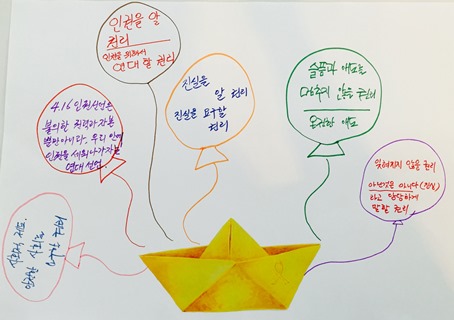 인권을 알
권리
인권을 위해서
연대할 권리
4.16 인권선언은
불의한 권력과 자본
뿐만 아니라 우리 안에
인권을 세워나가자는
연대 선언
진실을
알 권리
진실을 요구할
권리
슬픔과 애도를
멈추지 않을 권리
온전한 애도
잊혀지지 않을 권리
아닌것은 아니다 (진실)
라고 당당하게
말할 권리
안전한 사회를
권리